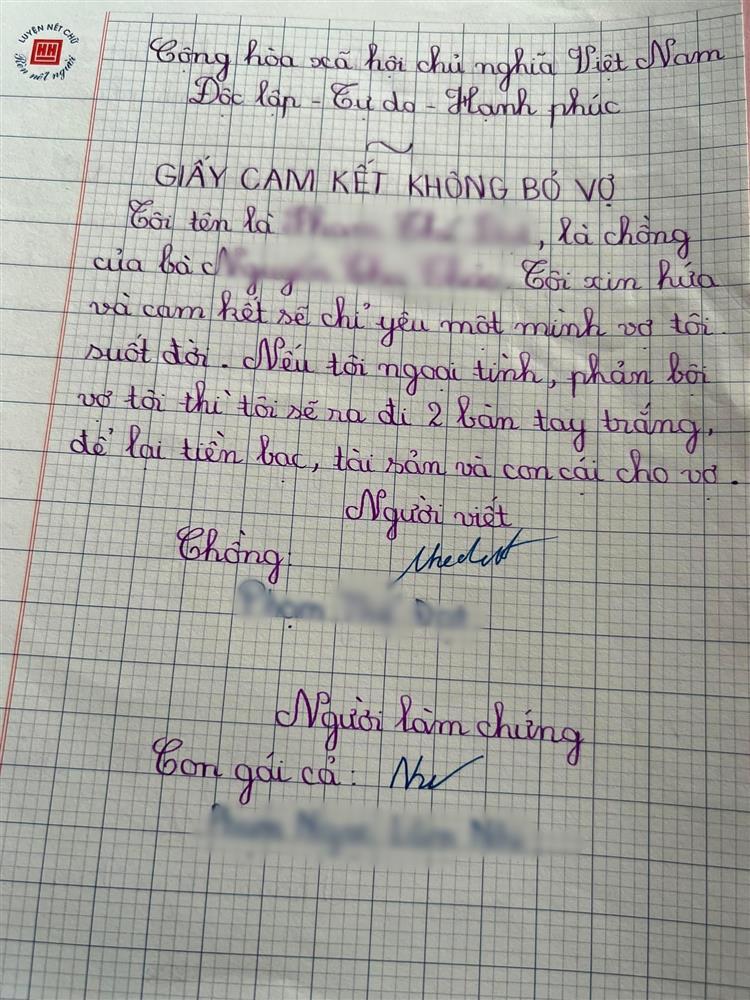 LUYỆN NÉT CHỮ
HH
Rèn nết người
Cộng hòa xã hội chủ nghĩa Việt Nam
Độc lập - Tự do - Hạnh phúc
GIẤY CAM KẾT KHÔNG BỎ VỢ
Tôi tên là , là chồng
của bà Tôi xin hứa
và cam kết sẽ chỉ yêu một mình vợ tôi
suốt đời. Nếu tôi ngoại tình, phản bội
vợ tôi thì tôi sẽ ra đi 2 bàn tay trắng,
để lại tiền bạc, tài sản và con cái cho vợ.
Người viết
Chồng
Người làm chứng
Con gái cả: Như